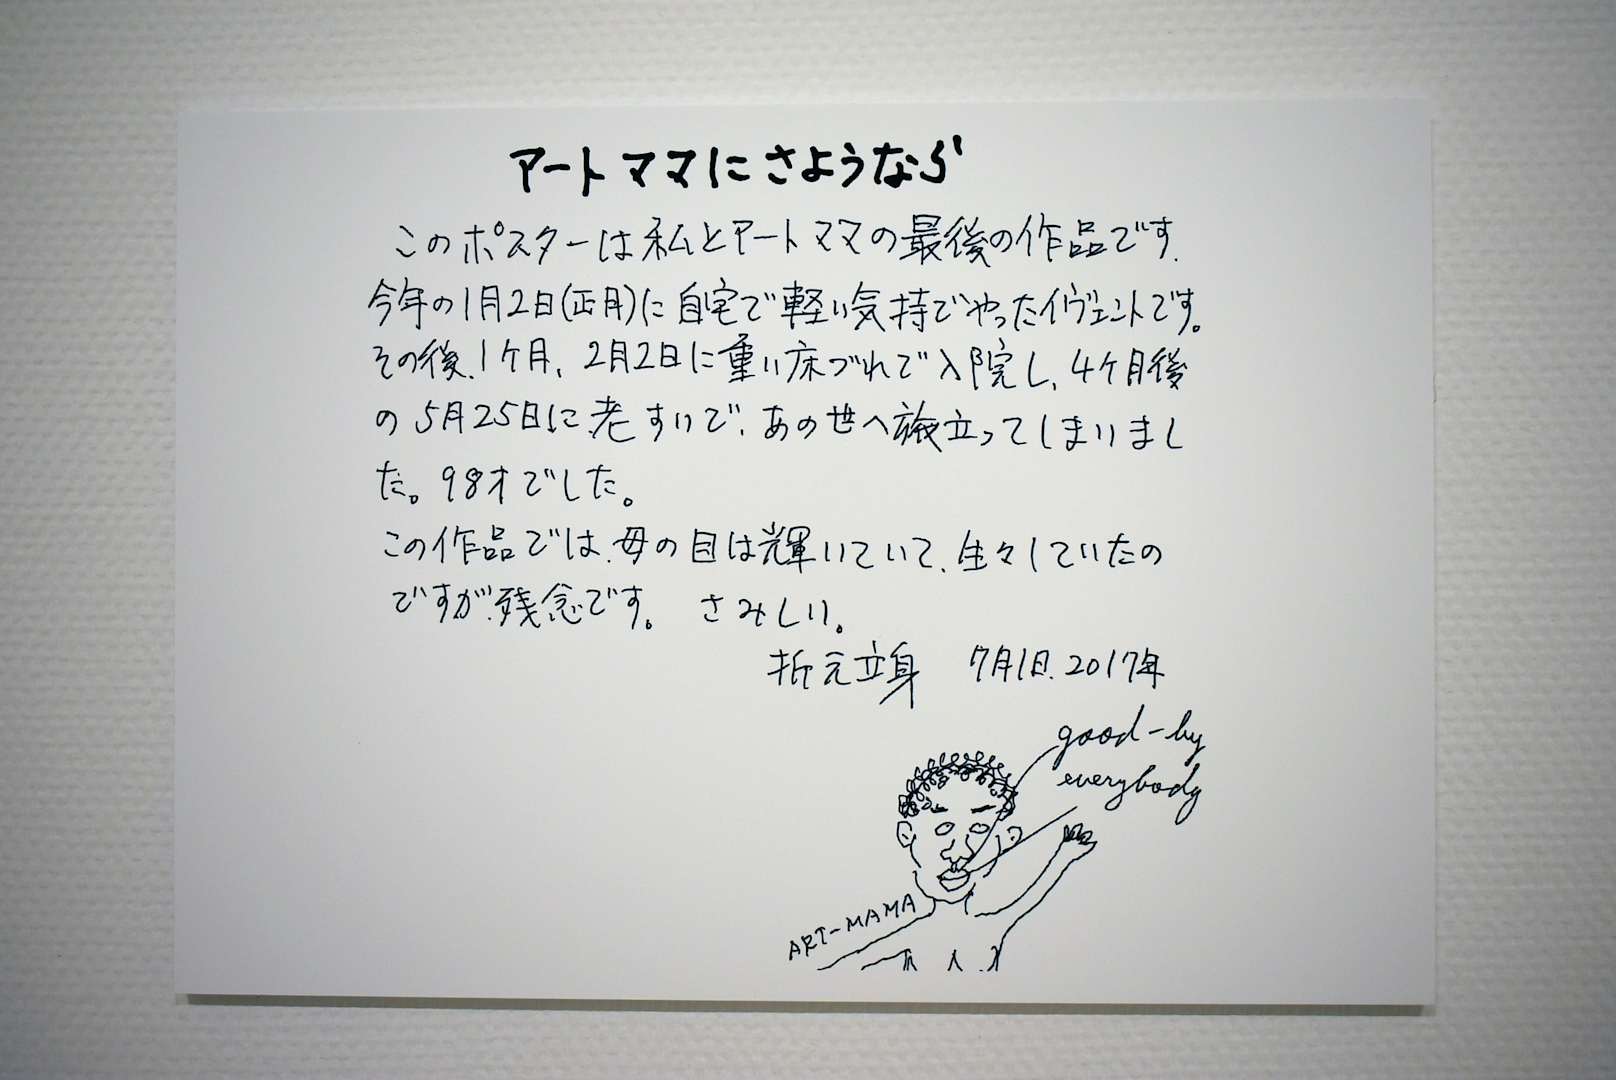 アートママにさようなら
このポスターは私とアートママの最後の作品です.
今年の1月2日(正月)に自宅で軽い気持でやったイヴェントです。
その後、1ケ月、2月2日に重い床づれで入院し、4ケ月後
の5月25日に、老すいで、あの世へ旅立ってしまいまし
た。98才でした。
この作品では、母の目は輝いていて、生々していたの
ですが、残念です。 さみしい。
折元立身 7月1日.2017年
good-by
everybody
ART-MAMA